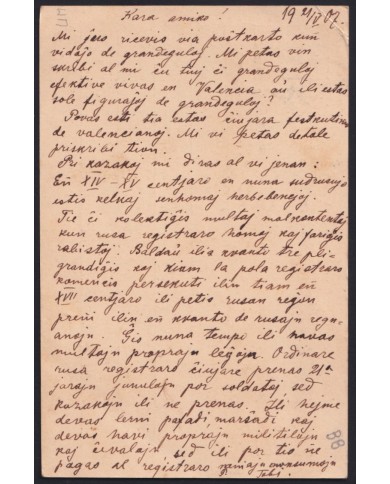 Kara amiko! 19 21/IV 07.
Mi jus ricevis via poŝtkarto kun
vidajo de grandeguloj. Mi petas vin
skribi al mi ĉu tiuj ĉi grandeguloj
efektive vivas en Valencia aŭ ili estas
sole figurajoj de grandeguloj?
Povas esti tia estas ĉiujara festkutimo
de valencianoj. Mi vi petas detale
priskribi tion.
Pri kazakoj mi diras al vi jenan:
En XIV - XV centjaro en nuna sudrusujo
estis kelkaj senhomaj herbobenejoj.
Tie ĉi kolektiĝis multaj malkontentaj
kun rusa registraro homoj kaj fariĝis
rabistoj. Baldaŭ ilia kvanto tre pli-
grandiĝis kaj kiam la pola registraro
komencis persekuti ilin tiam en
XVII centjaro ili petis rusan regon
preni ilin en kvanto de rusajn reg-
anojn. Ĝis nuna tempo ili havas
multajn proprajn leĝojn. Ordinare
rusa registraro ĉiujare prenas 21an
jarajn junulojn por soldatoj sed
kazakojn ili ne prenas. Ili hejme
devas lerni pafadi marŝadi kaj
devas havi proprajn militilojn
kaj ĉevalojn sed ili por tio ne
pagas al registraro
88